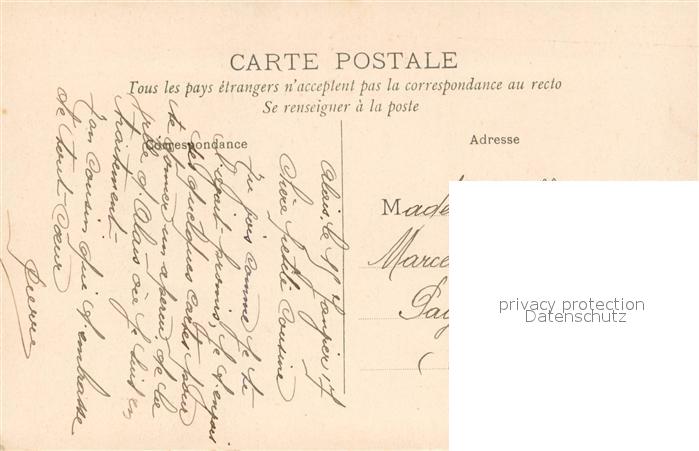 CARTE POSTALE
Tous les pays étrangers n'acceptent pas la correspondance au recto
Se renseigner à la poste
Correspondance
Adresse
Alais, le Janvier
Chère petite Cousine
Tu vois comme je te
l'avait promis, je t'envoi
des quelques cartes pour
te donner un aperçu de la
ville d'Alais où je suis en
traitement.
Ton cousin qui t'embrasse
de tout cœur
Pierre
Made
Marce
privacy protection
Datenschutz